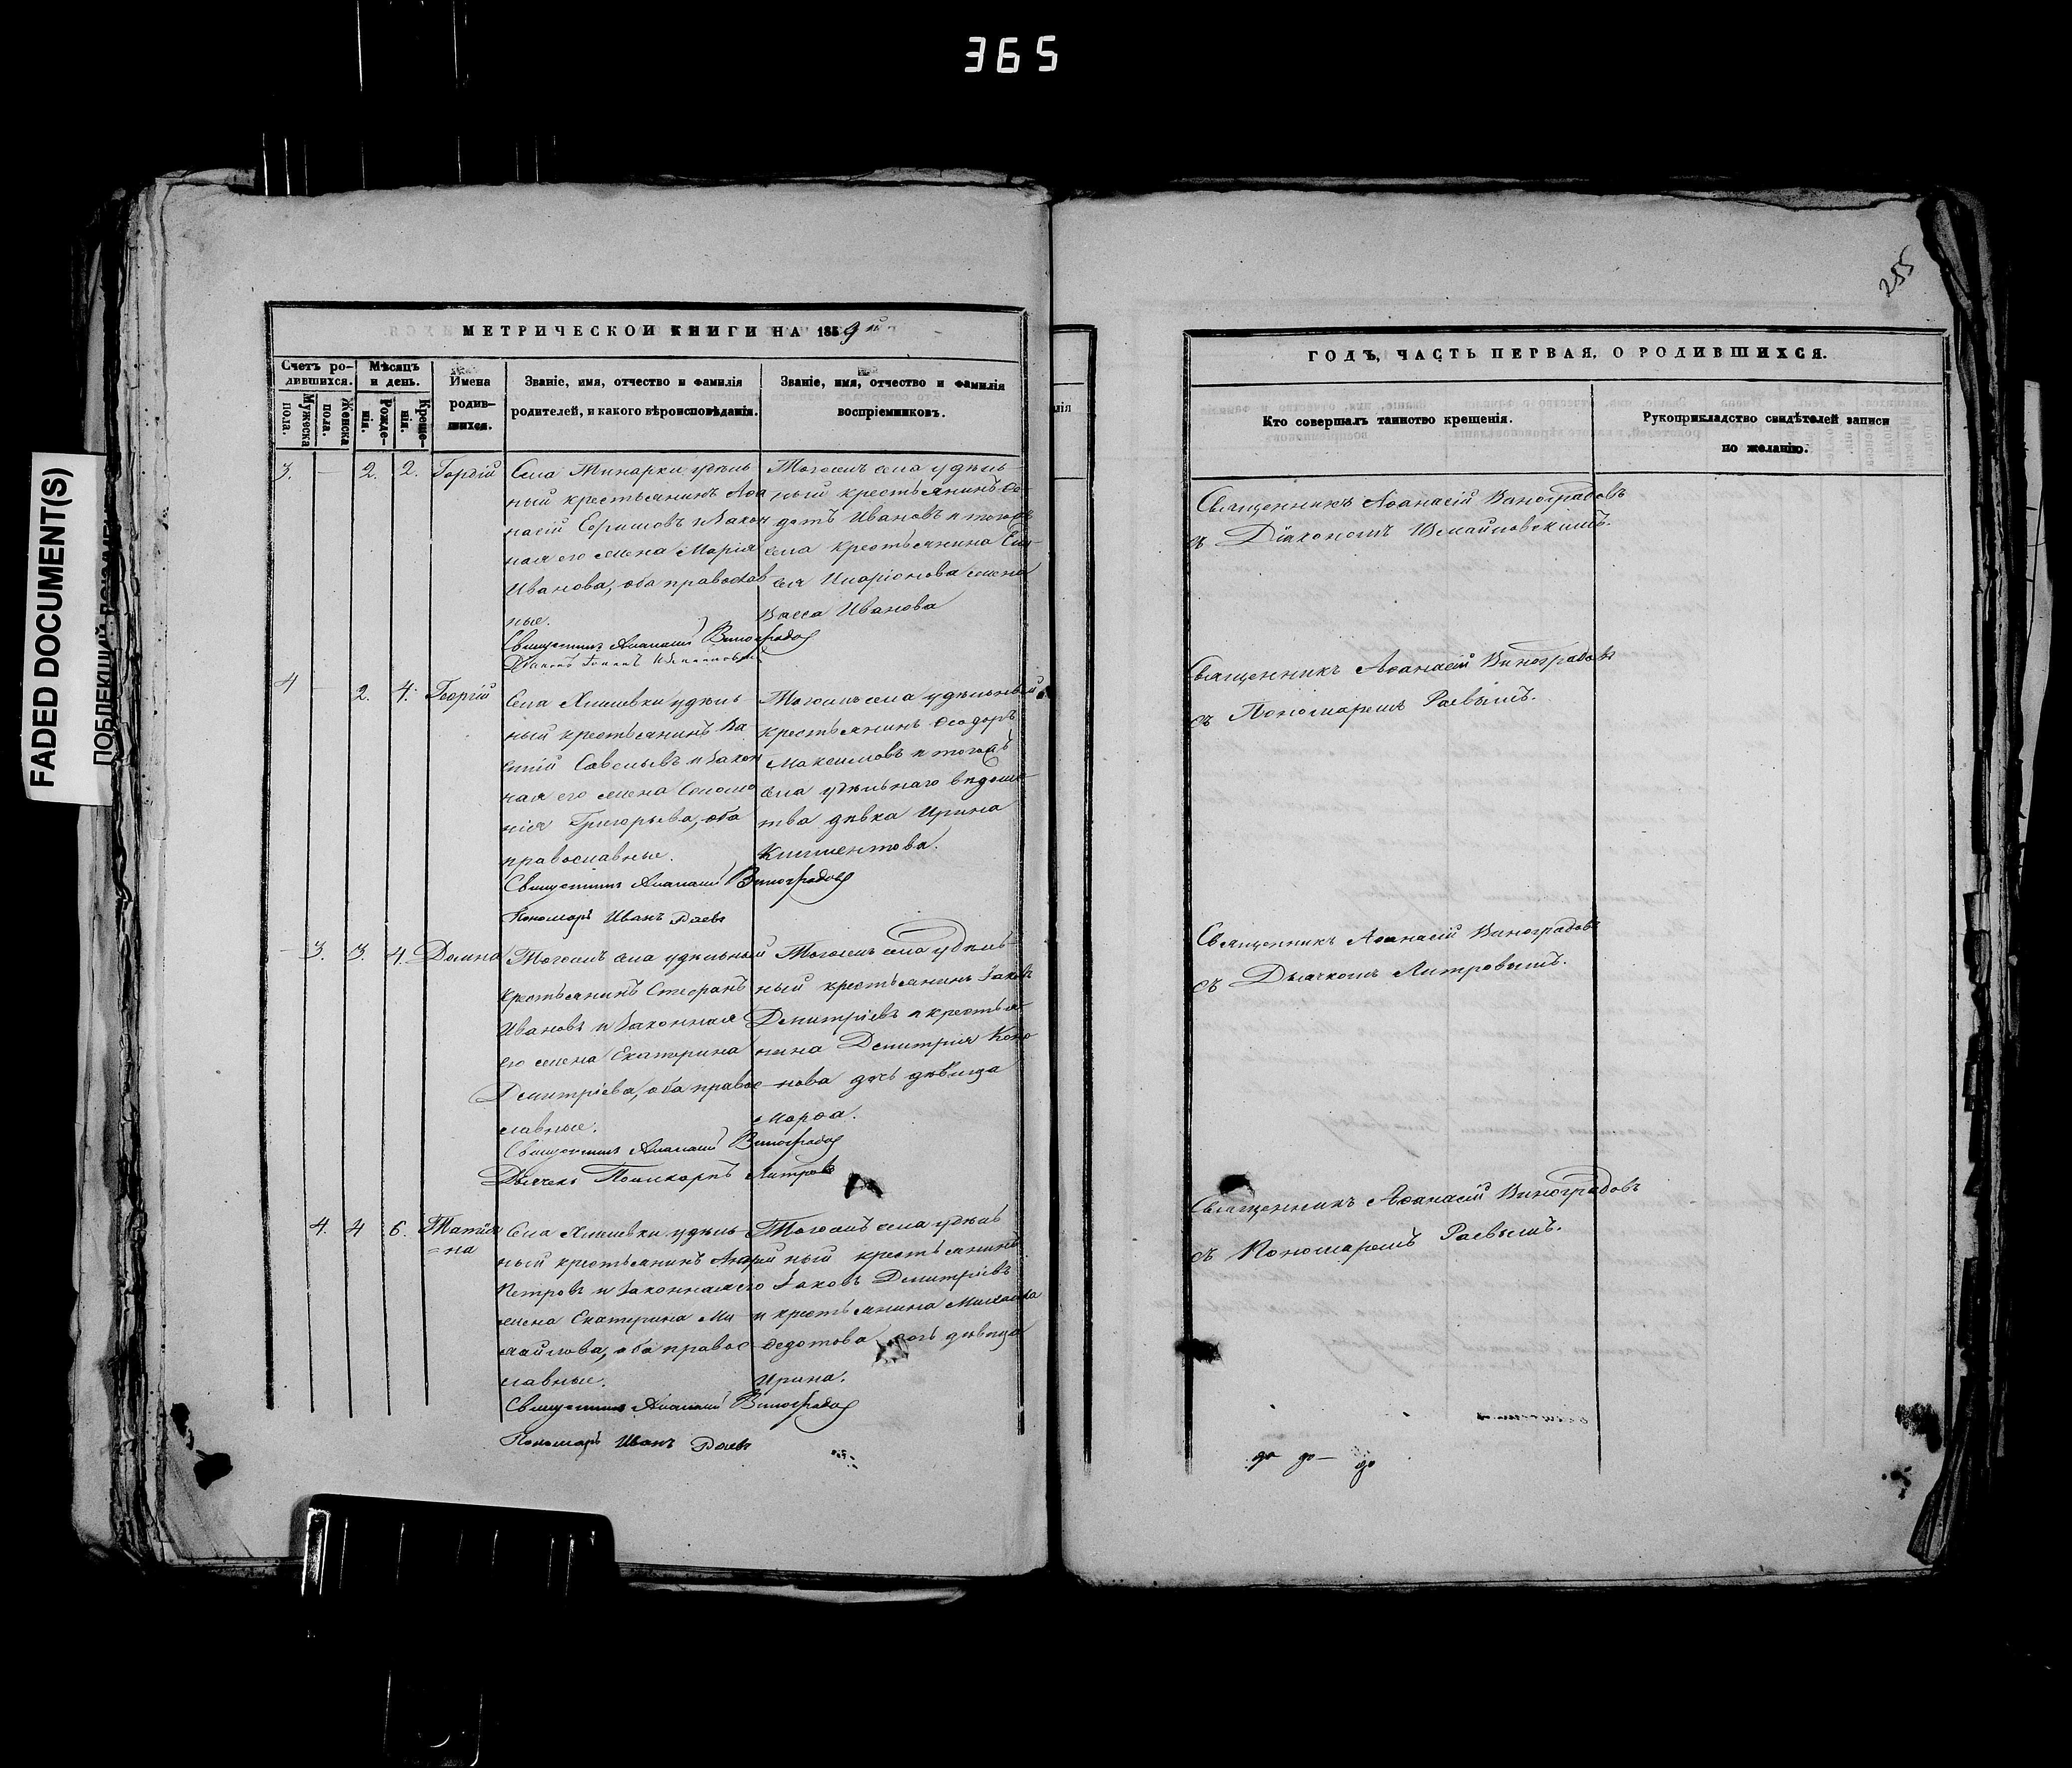 365
FADED DOCUMENT(S)
255
МЕТРИЧЕСКОЙ КНИГИ НА 1859й
Счетъ ро-
дившихся.
Мужеска
пола.
Женска
пола.
Мѣсяцъ
и день.
Рожде-
нія.
Креще-
нія.
Имена
родив-
шихся.
Званіе, имя, отчество и фамилія
родителей, и какого вѣроисповѣданія.
Званіе, имя, отчество и фамилія
воспріемниковъ.
3. — 2. 2. Георгій
ный крестьянинъ Аѳа
насій Ефимовъ и закон
ная его жена Марія
Иванова, оба православ
ные.
Священникъ Аѳанасій Виноградовъ
Тогожъ села удѣль-
ный крестьянинъ Ѳе-
дотъ Ивановъ и тогожъ
села крестьянина
Иларіонова жена
Васса Иванова
4 — 2. 4. Георгій
Села удѣль-
ный крестьянинъ Ва
силій Савельевъ и закон
ная его жена Соломо
нія Григорьева, оба
православные.
Священникъ Аѳанасій Виноградовъ
Пономарь Иванъ Раевъ
Тогожъ села удѣльный
крестьянинъ Ѳеодоръ
Максимовъ и тогожъ
села удѣльнаго вѣдомс-
тва дѣвка Ирина
Климентова.
— 3. 3. 4. Домна
Тогожъ села удѣльный
крестьянинъ Стефанъ
Ивановъ и законная
его жена Екатерина
Дмитріева, оба правос
лавные.
Священникъ Аѳанасій Виноградовъ
Дьячекъ Поликарпъ Митровъ
Тогожъ села удѣль-
ный крестьянинъ Іаковъ
Дмитріевъ и крестья-
нина Дмитрія Коно
нова дочь дѣвица
Марѳа.
4. 4 6. Татія
=на
Села удѣль-
ный крестьянинъ Андрей
Петровъ и законная его
жена Екатерина Ми
хайлова, оба правос
лавные.
Священникъ Аѳанасій Виноградовъ
Пономарь Иванъ Раевъ
Тогожъ села удѣль
ный крестьянинъ
Іаковъ Дмитріевъ
и крестьянина Михаила
Ѳедотова дочь дѣвица
Ирина.
ГОДЪ, ЧАСТЬ ПЕРВАЯ, О РОДИВШИХСЯ.
Кто совершалъ таинство крещенія.
Рукоприкладство свидѣтелей записи
по желанію.
Священникъ Аѳанасій Виноградовъ
съ Діакономъ Измайловскимъ.
Священникъ Аѳанасій Виноградовъ
съ Пономаремъ Раевымъ.
Священникъ Аѳанасій Виноградовъ
съ Дьячкомъ Митровымъ.
Священникъ Аѳанасій Виноградовъ
съ Пономаремъ Раевымъ.